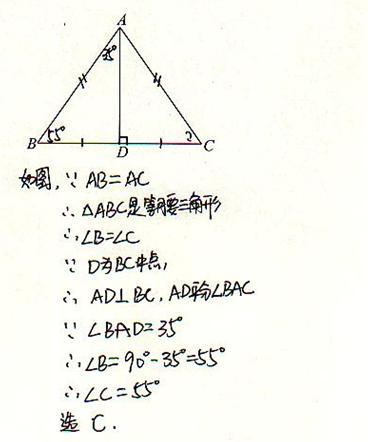 A
35°
B 55° D 2 C
如图, ∵ AB=AC
∴ △ABC是等腰三角形
∴ ∠B=∠C
∵ D为BC中点,
∴ AD⊥BC, AD平分∠BAC
∵ ∠BAD=35°
∴ ∠B=90°-35°=55°
∴ ∠C=55°
选 C.